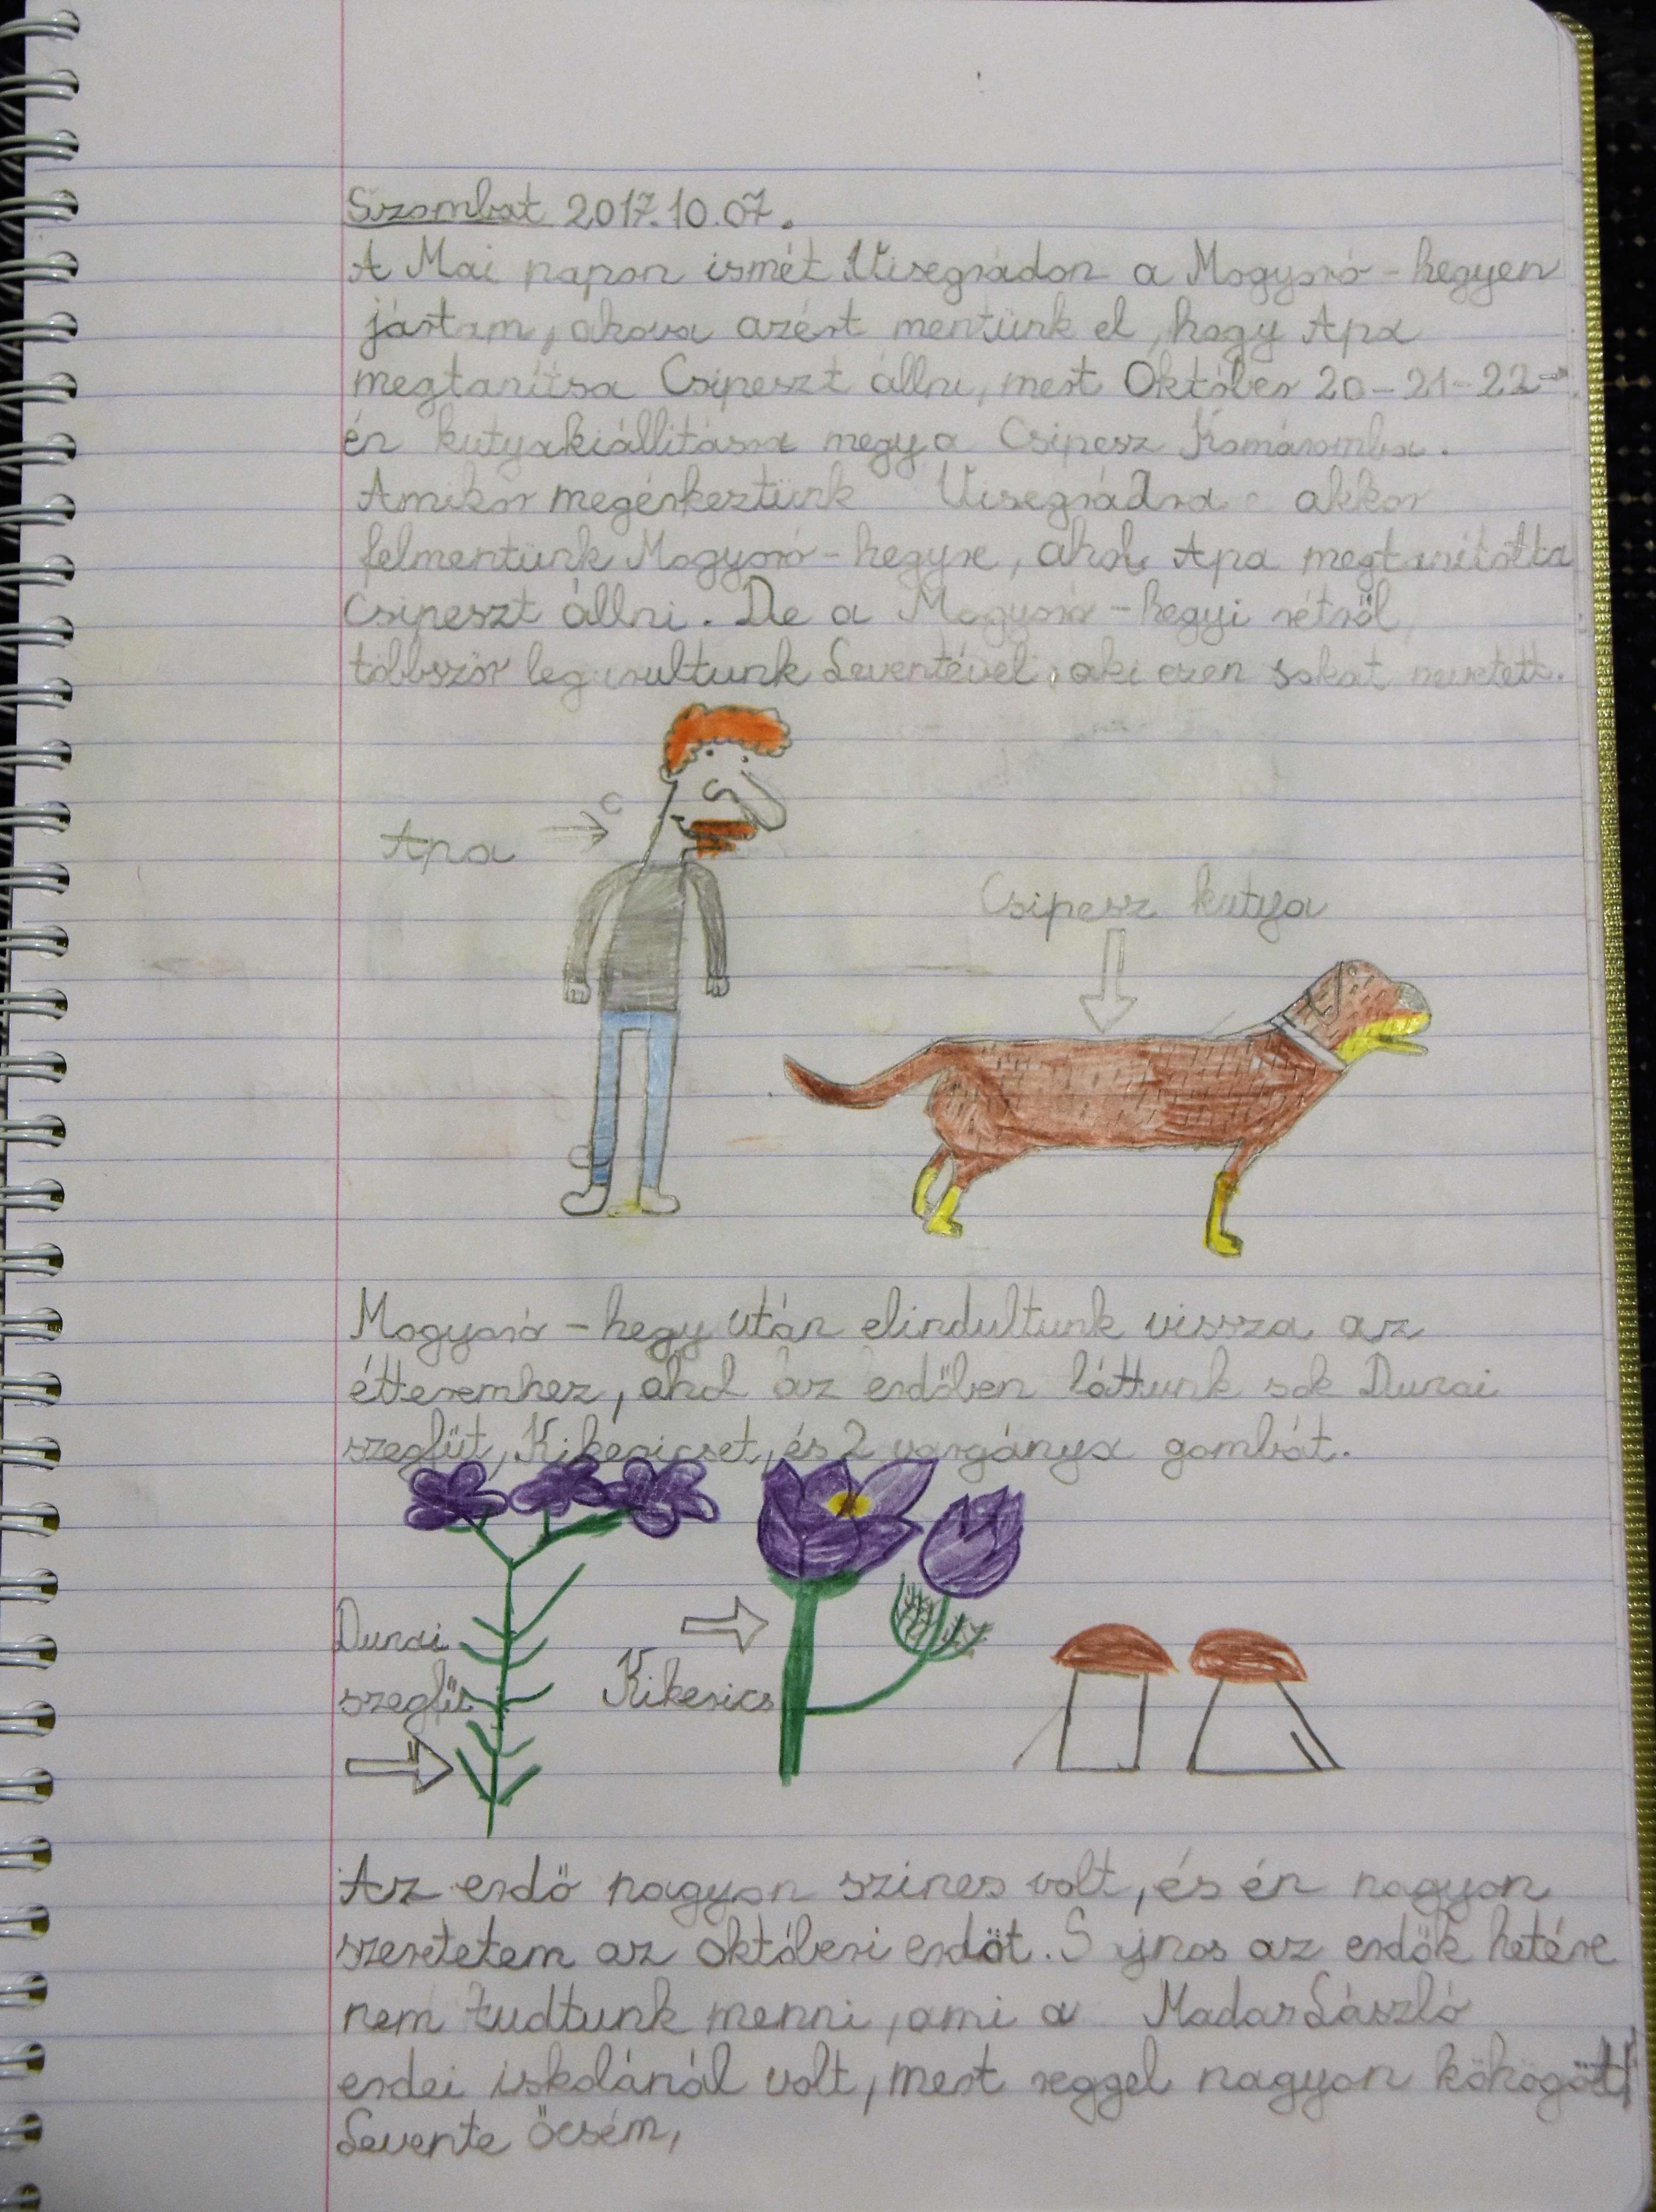 Szombat 2017.10.07.
A Mai napon ismét Visegrádon a Mogyoró-hegyen
jártam, ahova azért mentünk el, hogy Apa
megtanítsa Csipeszt állni, mert Október 20-21-22-
én kutyakiállításra megy a Csipesz Komáromba.
Amikor megérkeztünk Visegrádra akkor
felmentünk Mogyoró-hegyre, ahol Apa megtanította
Csipeszt állni. De a Mogyoró-hegyi rétről
többször legurultunk Leventével, aki ezen sokat nevetett.
Apa
Csipesz kutya
Mogyoró-hegy után elindultunk vissza az
étteremhez, ahol az erdőben láttunk sok Dunai
szegfűt, Kikericset, és 2 vargánya gombát.
Dunai
szegfű
Kikerics
Az erdő nagyon szines volt, és én nagyon
szeretetem az októberi erdőt. S jnos az erdők hetére
nem tudtunk menni, ami a Madas László
erdei iskolánál volt, mert reggel nagyon köhögött
Levente öcsém,